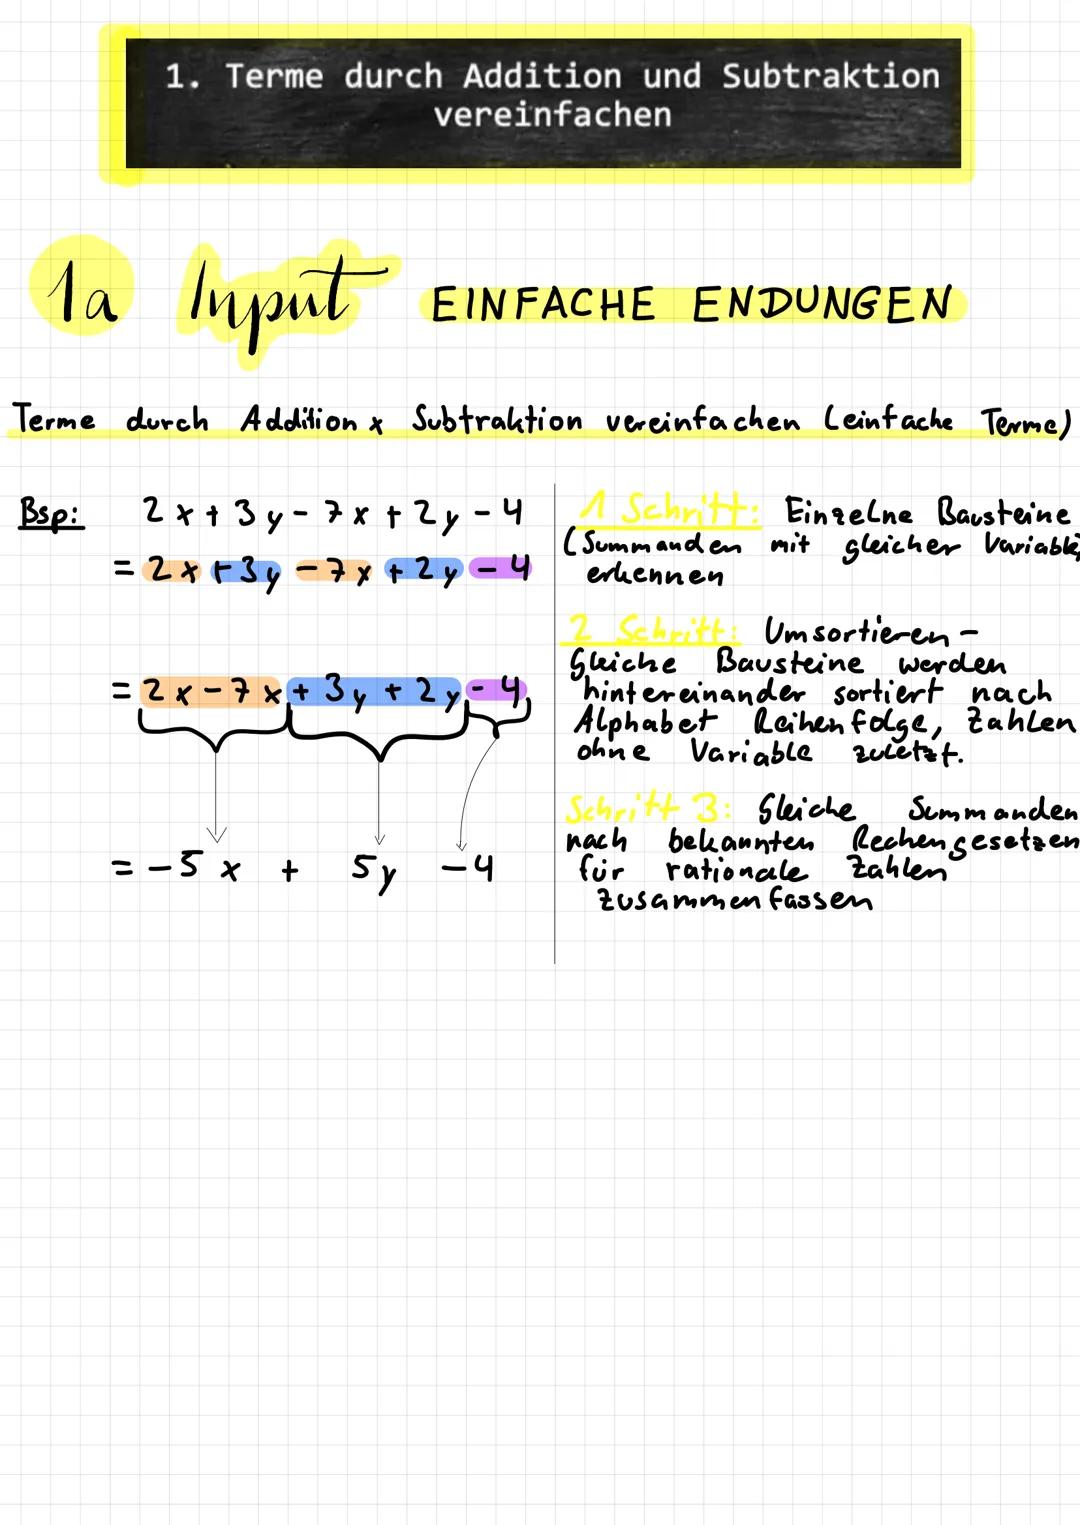 1. Terme durch Addition und Subtraktion
vereinfachen
1a Input EINFACHE ENDUNGEN
Terme durch Addition x Subtraktion vereinfachen (einfache Terme)
Bsp: 2x + 3y - 7x + 2y - 4
= 2x + 3y - 7x + 2y - 4
= 2x - 7x + 3y + 2y - 4
= -5x + 5y -4
1 Schritt: Einzelne Bausteine
(Summanden mit gleicher Variable)
erkennen
2 Schritt: Umsortieren -
Gleiche Bausteine werden
hintereinander sortiert nach
Alphabet Reihenfolge, Zahlen
ohne Variable zuletzt.
Schritt 3: Gleiche Summanden
nach bekannten Rechengesetzen
für rationale Zahlen
zusammenfassen